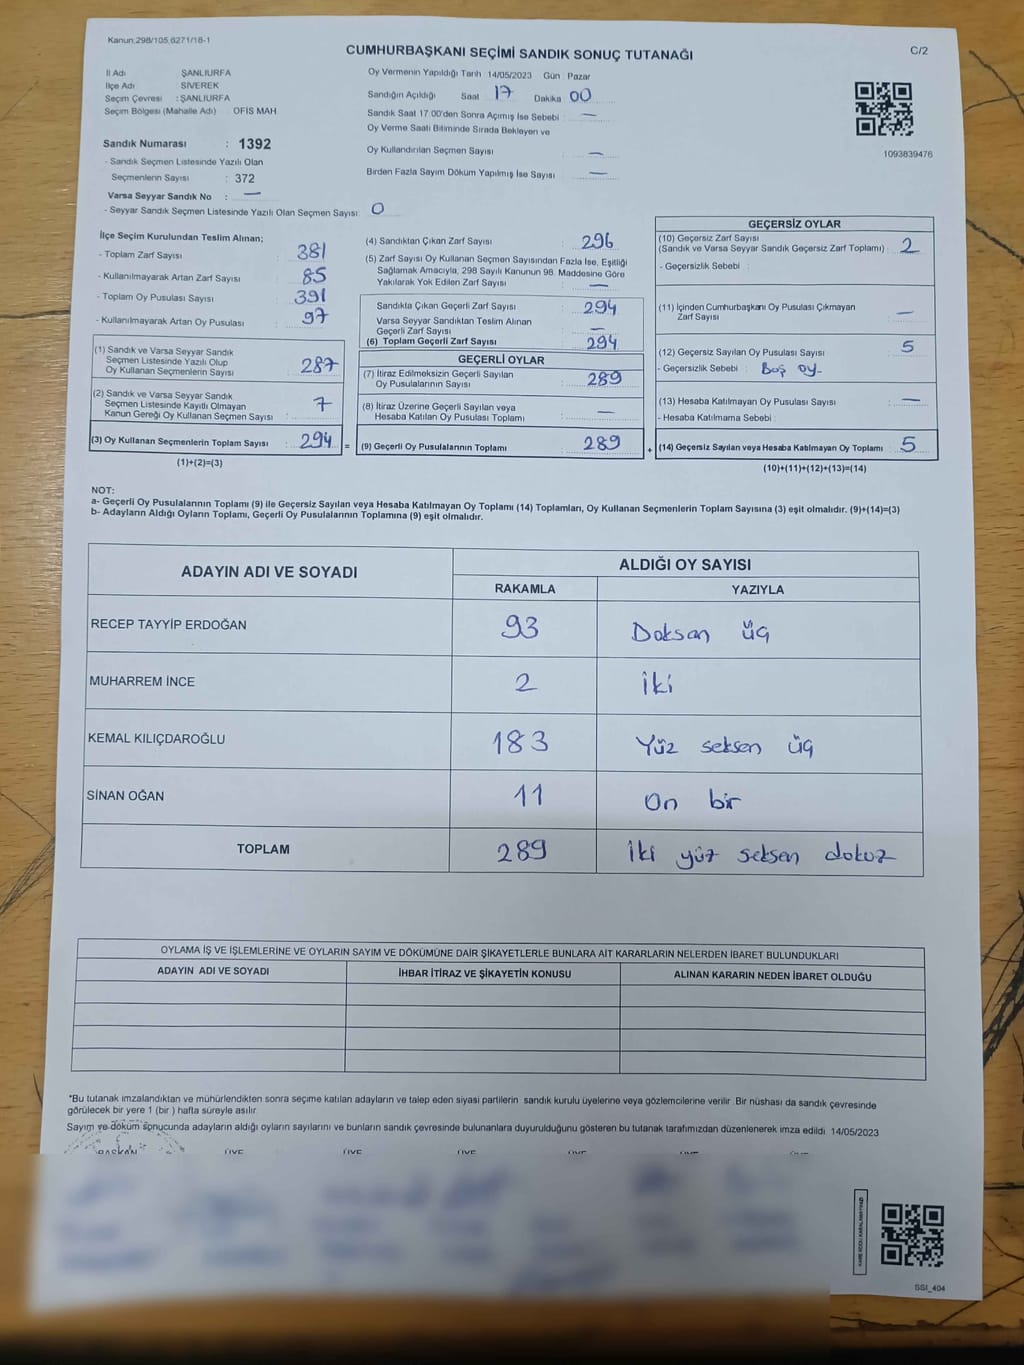 Kanun 298/105,6271/18-1
CUMHURBAŞKANI SEÇİMİ SANDIK SONUÇ TUTANAĞI
C/2
İl Adı ŞANLIURFA
İlçe Adı SİVEREK
Seçim Çevresi : ŞANLIURFA
Seçim Bölgesi (Mahalle Adı) : OFİS MAH
Sandık Numarası : 1392
- Sandık Seçmen Listesinde Yazılı Olan
Seçmenlerin Sayısı : 372
Varsa Seyyar Sandık No : —
- Seyyar Sandık Seçmen Listesinde Yazılı Olan Seçmen Sayısı: 0
Oy Vermenin Yapıldığı Tarih 14/05/2023 Gün : Pazar
Sandığın Açıldığı Saat 17 Dakika 00
Sandık Saat 17:00'den Sonra Açımış İse Sebebi : —
Oy Verme Saati Bitiminde Sırada Bekleyen ve
Oy Kullandırılan Seçmen Sayısı : —
Birden Fazla Sayım Döküm Yapılmış İse Sayısı : —
1093839476
İlçe Seçim Kurulundan Teslim Alınan;
- Toplam Zarf Sayısı : 381
- Kullanılmayarak Artan Zarf Sayısı : 85
- Toplam Oy Pusulası Sayısı : 391
- Kullanılmayarak Artan Oy Pusulası : 97
(1) Sandık ve Varsa Seyyar Sandık
Seçmen Listesinde Yazılı Olup
Oy Kullanan Seçmenlerin Sayısı : 287
(2) Sandık ve Varsa Seyyar Sandık
Seçmen Listesinde Kayıtlı Olmayan
Kanun Gereği Oy Kullanan Seçmen Sayısı : 7
(3) Oy Kullanan Seçmenlerin Toplam Sayısı : 294 =
(1)+(2)=(3)
(4) Sandıktan Çıkan Zarf Sayısı : 296
(5) Zarf Sayısı Oy Kullanan Seçmen Sayısından Fazla İse, Eşitliği
Sağlamak Amacıyla, 298 Sayılı Kanunun 98. Maddesine Göre
Yakılarak Yok Edilen Zarf Sayısı : —
Sandıkta Çıkan Geçerli Zarf Sayısı : 294
Varsa Seyyar Sandıktan Teslim Alınan
Geçerli Zarf Sayısı : —
(6) Toplam Geçerli Zarf Sayısı : 294
GEÇERLİ OYLAR
(7) İtiraz Edilmeksizin Geçerli Sayılan
Oy Pusulalarının Sayısı : 289
(8) İtiraz Üzerine Geçerli Sayılan veya
Hesaba Katılan Oy Pusulası Toplamı : —
(9) Geçerli Oy Pusulalarının Toplamı : 289 +
GEÇERSİZ OYLAR
(10) Geçersiz Zarf Sayısı
(Sandık ve Varsa Seyyar Sandık Geçersiz Zarf Toplamı) : 2
- Geçersizlik Sebebi :
(11) İçinden Cumhurbaşkanı Oy Pusulası Çıkmayan
Zarf Sayısı : —
(12) Geçersiz Sayılan Oy Pusulası Sayısı : 5
- Geçersizlik Sebebi : Boş oy-
(13) Hesaba Katılmayan Oy Pusulası Sayısı : —
- Hesaba Katılmama Sebebi :
(14) Geçersiz Sayılan veya Hesaba Katılmayan Oy Toplamı : 5
(10)+(11)+(12)+(13)=(14)
NOT:
a- Geçerli Oy Pusulalarının Toplamı (9) ile Geçersiz Sayılan veya Hesaba Katılmayan Oy Toplamı (14) Toplamları, Oy Kullanan Seçmenlerin Toplam Sayısına (3) eşit olmalıdır. (9)+(14)=(3)
b- Adayların Aldığı Oyların Toplamı, Geçerli Oy Pusulalarının Toplamına (9) eşit olmalıdır.
ADAYIN ADI VE SOYADI ALDIĞI OY SAYISI
RAKAMLA YAZIYLA
RECEP TAYYİP ERDOĞAN 93 Doksan üç
MUHARREM İNCE 2 İki
KEMAL KILIÇDAROĞLU 183 Yüz seksen üç
SİNAN OĞAN 11 On bir
TOPLAM 289 İki yüz seksen dokuz
OYLAMA İŞ VE İŞLEMLERİNE VE OYLARIN SAYIM VE DÖKÜMÜNE DAİR ŞİKAYETLERLE BUNLARA AİT KARARLARIN NELERDEN İBARET BULUNDUKLARI
ADAYIN ADI VE SOYADI İHBAR İTİRAZ VE ŞİKAYETİN KONUSU ALINAN KARARIN NEDEN İBARET OLDUĞU
*Bu tutanak imzalandıktan ve mühürlendikten sonra seçime katılan adayların ve talep eden siyasi partilerin sandık kurulu üyelerine veya gözlemcilerine verilir. Bir nüshası da sandık çevresinde
görülecek bir yere 1 (bir ) hafta süreyle asılır.
Sayım ve döküm sonucunda adayların aldığı oyların sayılarını ve bunların sandık çevresinde bulunanlara duyurulduğunu gösteren bu tutanak tarafımızdan düzenlenerek imza edildi 14/05/2023
BAŞKAN ÜYE ÜYE ÜYE ÜYE ÜYE ÜYE
SSI_404